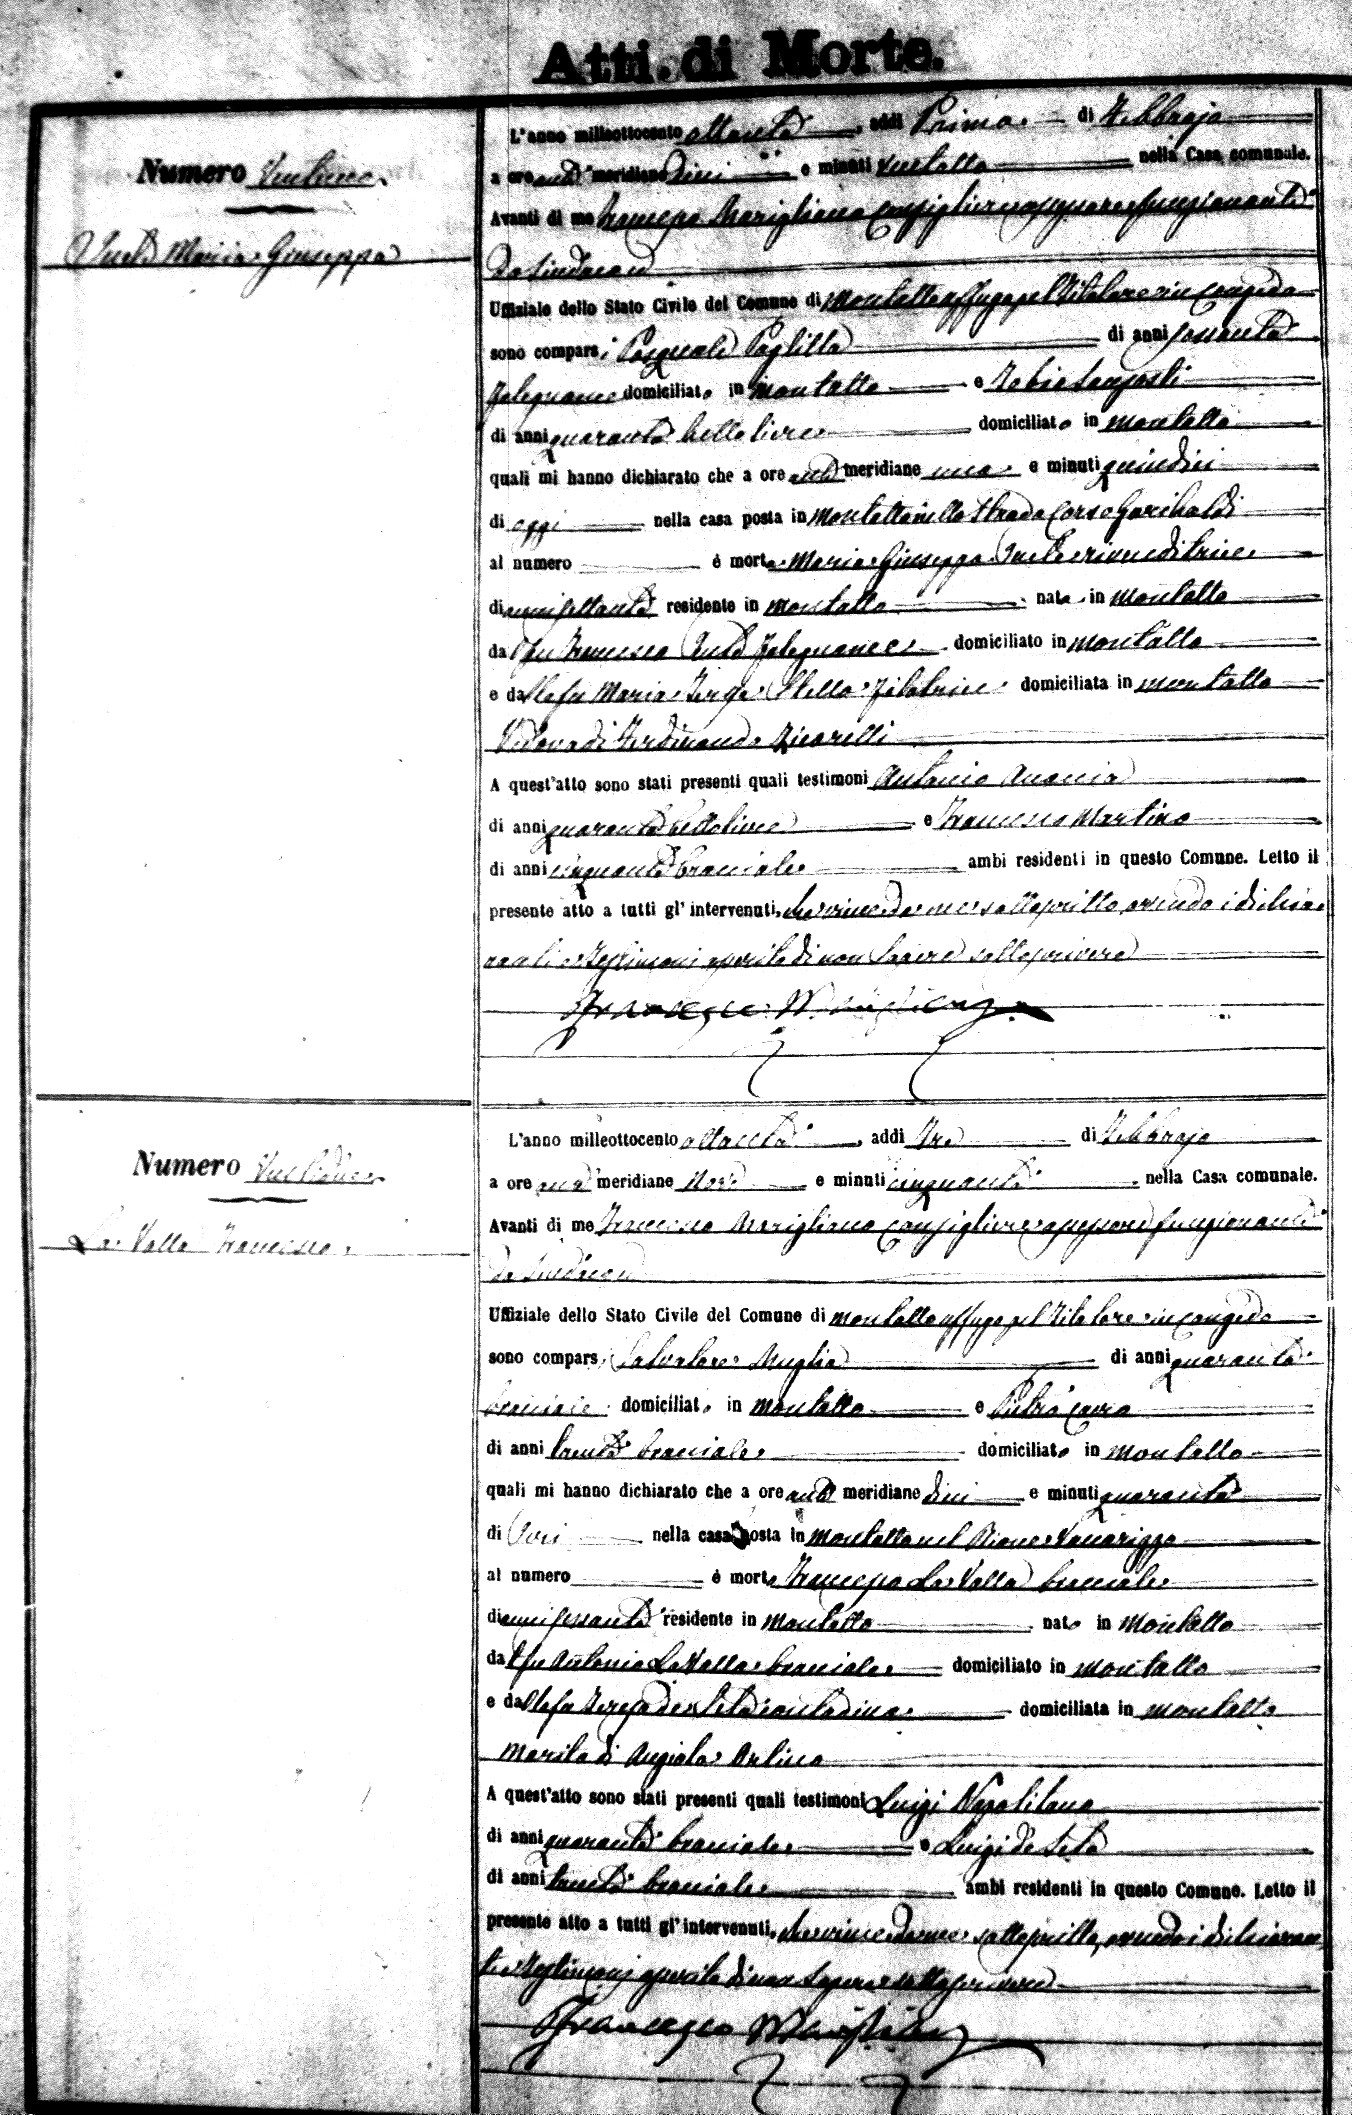 Atti di Morte.
Numero Ventuno
Maria Giuseppa
L'anno milleottocento ottanta, addi Primo di Febbrajo
a ore anti meridiane dieci e minuti ventotto nella Casa comunale.
Avanti di me Francesco Marigliano Consigliere assessore funzionante
da Sindaco
Uffiziale dello Stato Civile del Comune di Montalto Uffugo pel Titolare in congedo
sono comparsi Pasquale Paglilla di anni sessanta
falegname domiciliato in Montalto e
di anni quaranta domiciliato in Montalto
quali mi hanno dichiarato che a ore anti meridiane una e minuti quindici
di oggi nella casa posta in Montalto nella Strada Corso Garibaldi
al numero è morta Maria Giuseppa rivenditrice
di anni settanta residente in Montalto nata in Montalto
da fu Francesco falegname domiciliato in Montalto
e da fu Maria Stella filatrice domiciliata in Montalto
Vedova di Ferdinando Zicarelli
A quest'atto sono stati presenti quali testimoni Antonio Anania
di anni quaranta e Francesco Martino
di anni cinquanta bracciale ambi residenti in questo Comune. Letto il
presente atto a tutti gl'intervenuti, che viene da me sottoscritto, avendo i dichia
ranti e testimoni asserito di non sapere sottoscrivere
Francesco Marigliano
Numero Ventidue
La Valle Francesco
L'anno milleottocento ottanta, addi Tre di Febbrajo
a ore anti meridiane Nove e minuti cinquanta nella Casa comunale.
Avanti di me Francesco Marigliano Consigliere assessore funzionante
da Sindaco
Uffiziale dello Stato Civile del Comune di Montalto Uffugo pel Titolare in congedo
sono comparsi Salvatore Muglia di anni quaranta
bracciale domiciliato in Montalto e Pietro Cava
di anni trenta bracciale domiciliato in Montalto
quali mi hanno dichiarato che a ore anti meridiane dieci e minuti quaranta
di Jeri nella casa posta in Montalto nel Rione Vaccarizzo
al numero è morto Francesco La Valle bracciale
di anni sessanta residente in Montalto nato in Montalto
da fu Antonio La Valle bracciale domiciliato in Montalto
e dalla fu Teresa de Seta contadina domiciliata in Montalto
marito di Angiola Orlino
A quest'atto sono stati presenti quali testimoni Luigi Napolitano
di anni quaranta bracciale e Luigi de Seta
di anni trenta bracciale ambi residenti in questo Comune. Letto il
presente atto a tutti gl'intervenuti, che viene da me sottoscritto, avendo i dichiaran
ti e testimoni asserito di non sapere sottoscrivere
Francesco Marigliano